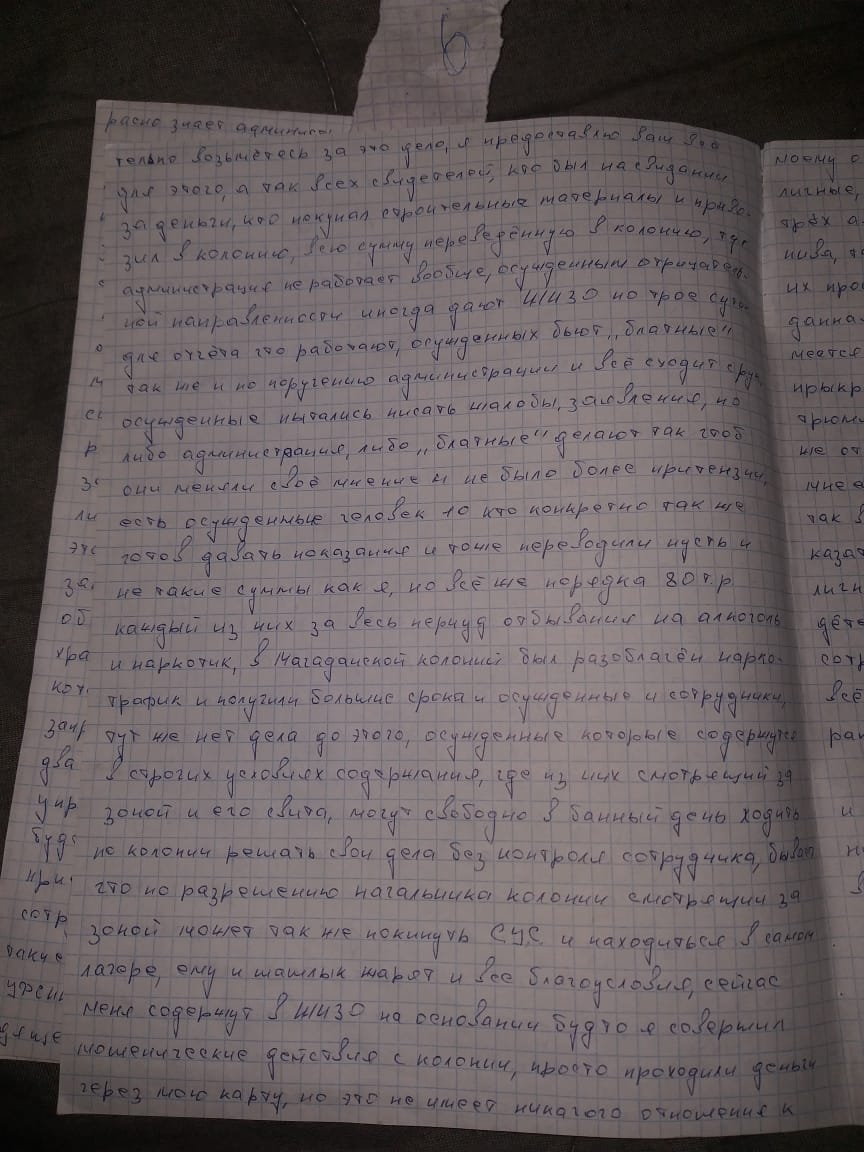 6
расно знает админис
тельно возьмётесь за это дело, я предоставлю вам все
для этого, а так всех свидетелей, кто был на свидании
за деньги, кто покупал строительные материалы и приво-
зил в колонию, всю сумму переведённую в колонию, где
администрация не работает вообще, осужденным отрицатель-
ной направленности иногда дают ШИЗО по трое суто
для отчёта что работают, осужденных бьют „блатные"
так же и по поручению администрации и всё сходит с рук,
осужденные пытались писать жалобы, заявления, но
либо администрация, либо „блатные" делают так чтоб
они меняли своё мнение и не было более притензий,
есть осужденные человек 10 кто конкретно так же
готов давать показания и тоже переводили пусть и
не такие суммы как я, но всё же порядка 80 т.р
каждый из них за весь периуд отбывания на алкоголь
и наркотик, в Магаданской колонии был разоблачён нарко-
трафик и получили большие срока и осужденные и сотрудники,
тут же нет дела до этого, осужденные которые содержутся
в строгих условиях содержания, где из них смотрящий за
зоной и его свита, могут свободно в банный день ходить
по колонии решать свои дела без контроля сотрудника, бывает
что по разрешению начальника колонии смотрящий за
зоной может так же покинуть СУС и находиться в самом
лагере, ему и шашлык жарят и все благоусловия, сейчас
меня содержут в ШИЗО на основании будто я совершил
мошенические действия с колонии, просто проходили деньги
через мою карту, но это не имеет никагого отношения к
моему о
личные,
трёх а
нива, т
их про
данна
меется
прыкр
трюм
же от
мне
так в
казат
личн
дете
сотр
всё
ран
и
н
в
ли
это
за
об
хра
кот
запр
два
упр
буд
при
сотр
такие